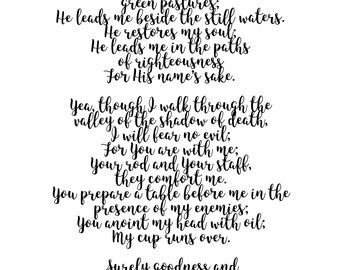 green pastures;
He leads me beside the still waters.
He restores my soul;
He leads me in the paths
of righteousness
For His name's sake.
Yea, though I walk through the
valley of the shadow of death,
I will fear no evil;
For You are with me;
Your rod and Your staff,
they comfort me.
You prepare a table before me in the
presence of my enemies;
You anoint my head with oil;
My cup runs over.
Surely goodness and